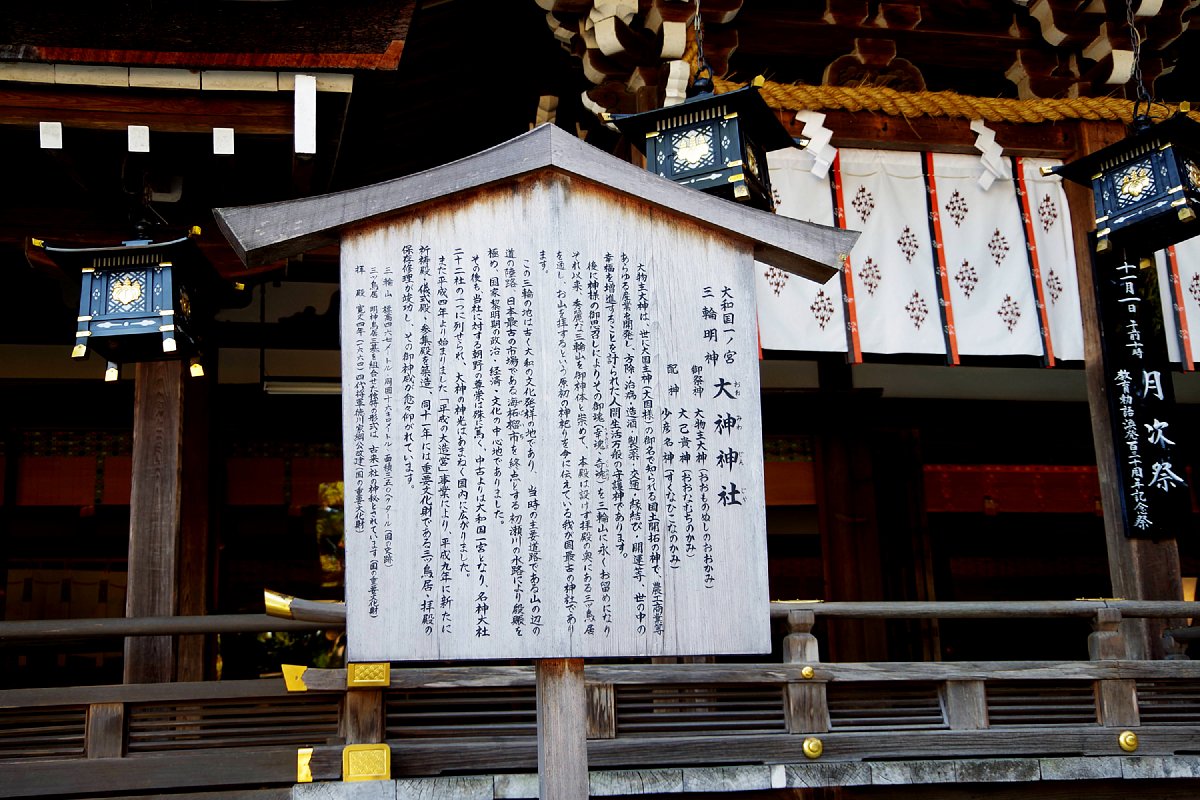 大和国一ノ宮
三輪明神 大神神社
御祭神 大物主大神（おおものぬしのおおかみ）
配神 大己貴神（おおなむちのかみ）
少彦名神（すくなひこなのかみ）
大物主大神は、世に大国主神（大国様）の御名で知られる国土開拓の神で、農工商業等
あらゆる産業を開発し、方除・治病・造酒・製薬・交通・縁結び・開運等、世の中の
幸福を増進することを計られた人間生活万般の守護神であります。
後に神様の御思召しによりその御魂（幸魂、奇魂）を三輪山に永くお留めになり
それ以来、秀麗な三輪山を御神体と崇めて、本殿は設けず拝殿の奥にある三ッ鳥居
を通し、お山を拝するという原初の神祀りを今に伝えている我が国最古の神社であり
ます。
この三輪の地は古く大和の文化発祥の地であり、当時の主要道路である山の辺の
道の陸路、日本最古の市場である海柘榴市を終点とする初瀬川の水路により殷賑を
極め、国家黎明期の政治・経済・文化の中心地でありました。
その後も当社に対する朝野の尊崇は殊に篤く、中古よりは大和国一宮となり、名神大社
二十二社の一つに列せられ、大神の神光はあまねく国内に広がりました。
また平成四年より始まりました「平成の大造営」事業により、平成九年に新たに
祈祷殿、儀式殿、参集殿を築造、同十一年には重要文化財である三ッ鳥居・拝殿の
保存修理が竣功し、その御神威が愈々仰がれています。
三輪山 標高四六七メートル・周囲十六キロメートル・面積三五〇ヘクタール（国の史跡）
三ッ鳥居 明神鳥居三基を組合せた独特の形式は、古来一社の神秘とされています（国の重要文化財）
拝殿 寛文四年（一六六四）四代将軍徳川家綱公改建（国の重要文化財）
十一月一日 午前十時 月次祭
教育勅語渙発百三十周年記念祭